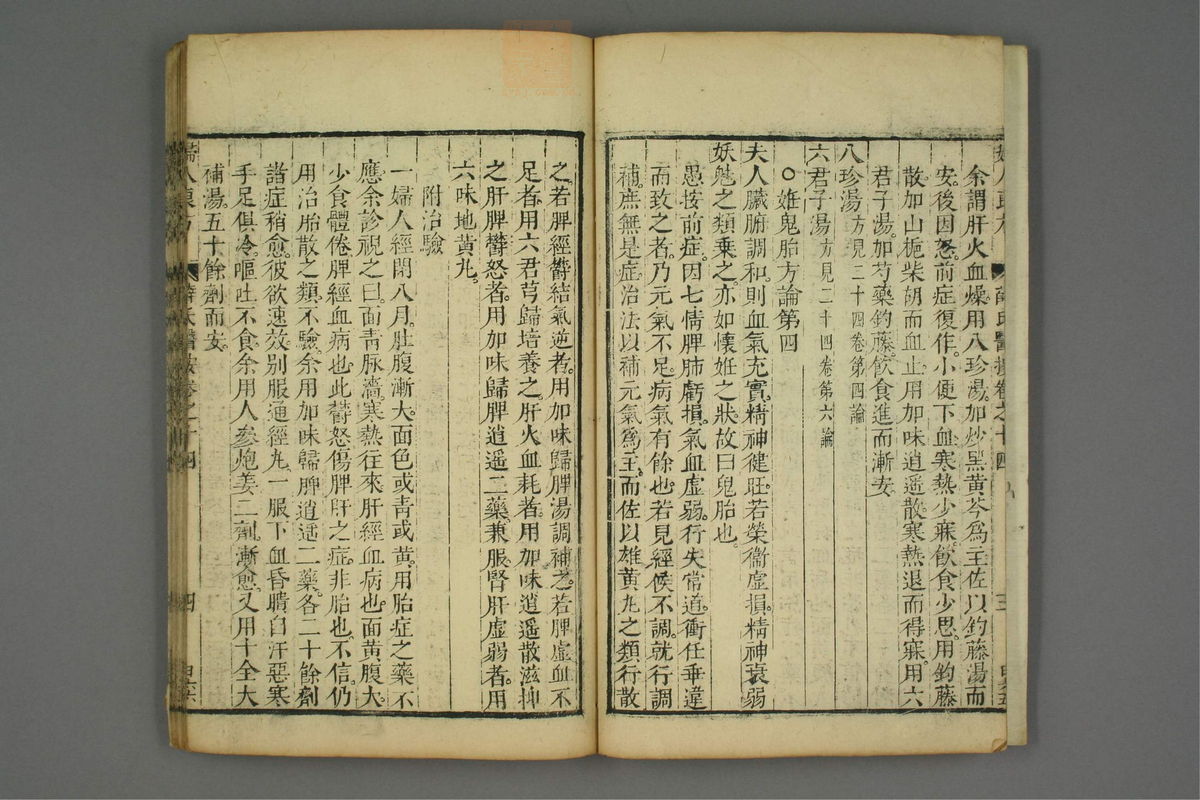 余謂肝火血燥。用八珍湯。加炒黑黄芩爲主。佐以鈎藤湯而
安。後因怒。前症復作。小便下血。寒熱少寐。飲食少思。用鈎藤
散加山梔柴胡而血止。用加味逍遥散。寒熱退而得寐。用六
君子湯。加芍藥鈎藤。飲食進而漸安。
八珍湯方見二十四卷第四論
六君子湯方見二十四卷第六論
○妊鬼胎方論第四
夫人臟腑調和。則血氣充實。精神健旺。若榮衞虛損。精神衰弱
妖魅之類乘之。亦如懷姙之狀。故曰鬼胎也。
愚按前症。因七情脾肺虧損。氣血虛弱。行失常道。衝任乖違
而致之者。乃元氣不足。病氣有餘也。若見經候不調。就行調
補。庶無是症。治法以補元氣爲主。而佐以雄黄丸之類行散
之。若脾經鬱結氣逆者。用加味歸脾湯調補之。若脾虛血不
足者。用六君芎歸培養之。肝火血耗者。用加味逍遥散滋抑
之。肝脾鬱怒者。用加味歸脾逍遥二藥兼服。腎肝虛弱者。用
六味地黄丸。
附治驗
一婦人經閉八月。肚腹漸大。面色或青或黄。用胎症之藥不
應。余診視之曰。面青脉濇。寒熱往來。肝經血病也。面黄腹大。
少食體倦。脾經血病也。此鬱怒傷脾肝之症。非胎也。不信。仍
用治胎散之類。不驗。余用加味歸脾逍遥二藥。各二十餘劑
諸症稍愈。彼欲速效。别服通經丸。一服下血昏聵。自汗惡寒
手足俱冷。嘔吐不食。余用人參炮姜二劑。漸愈。又用十全大
補湯。五十餘劑而安。